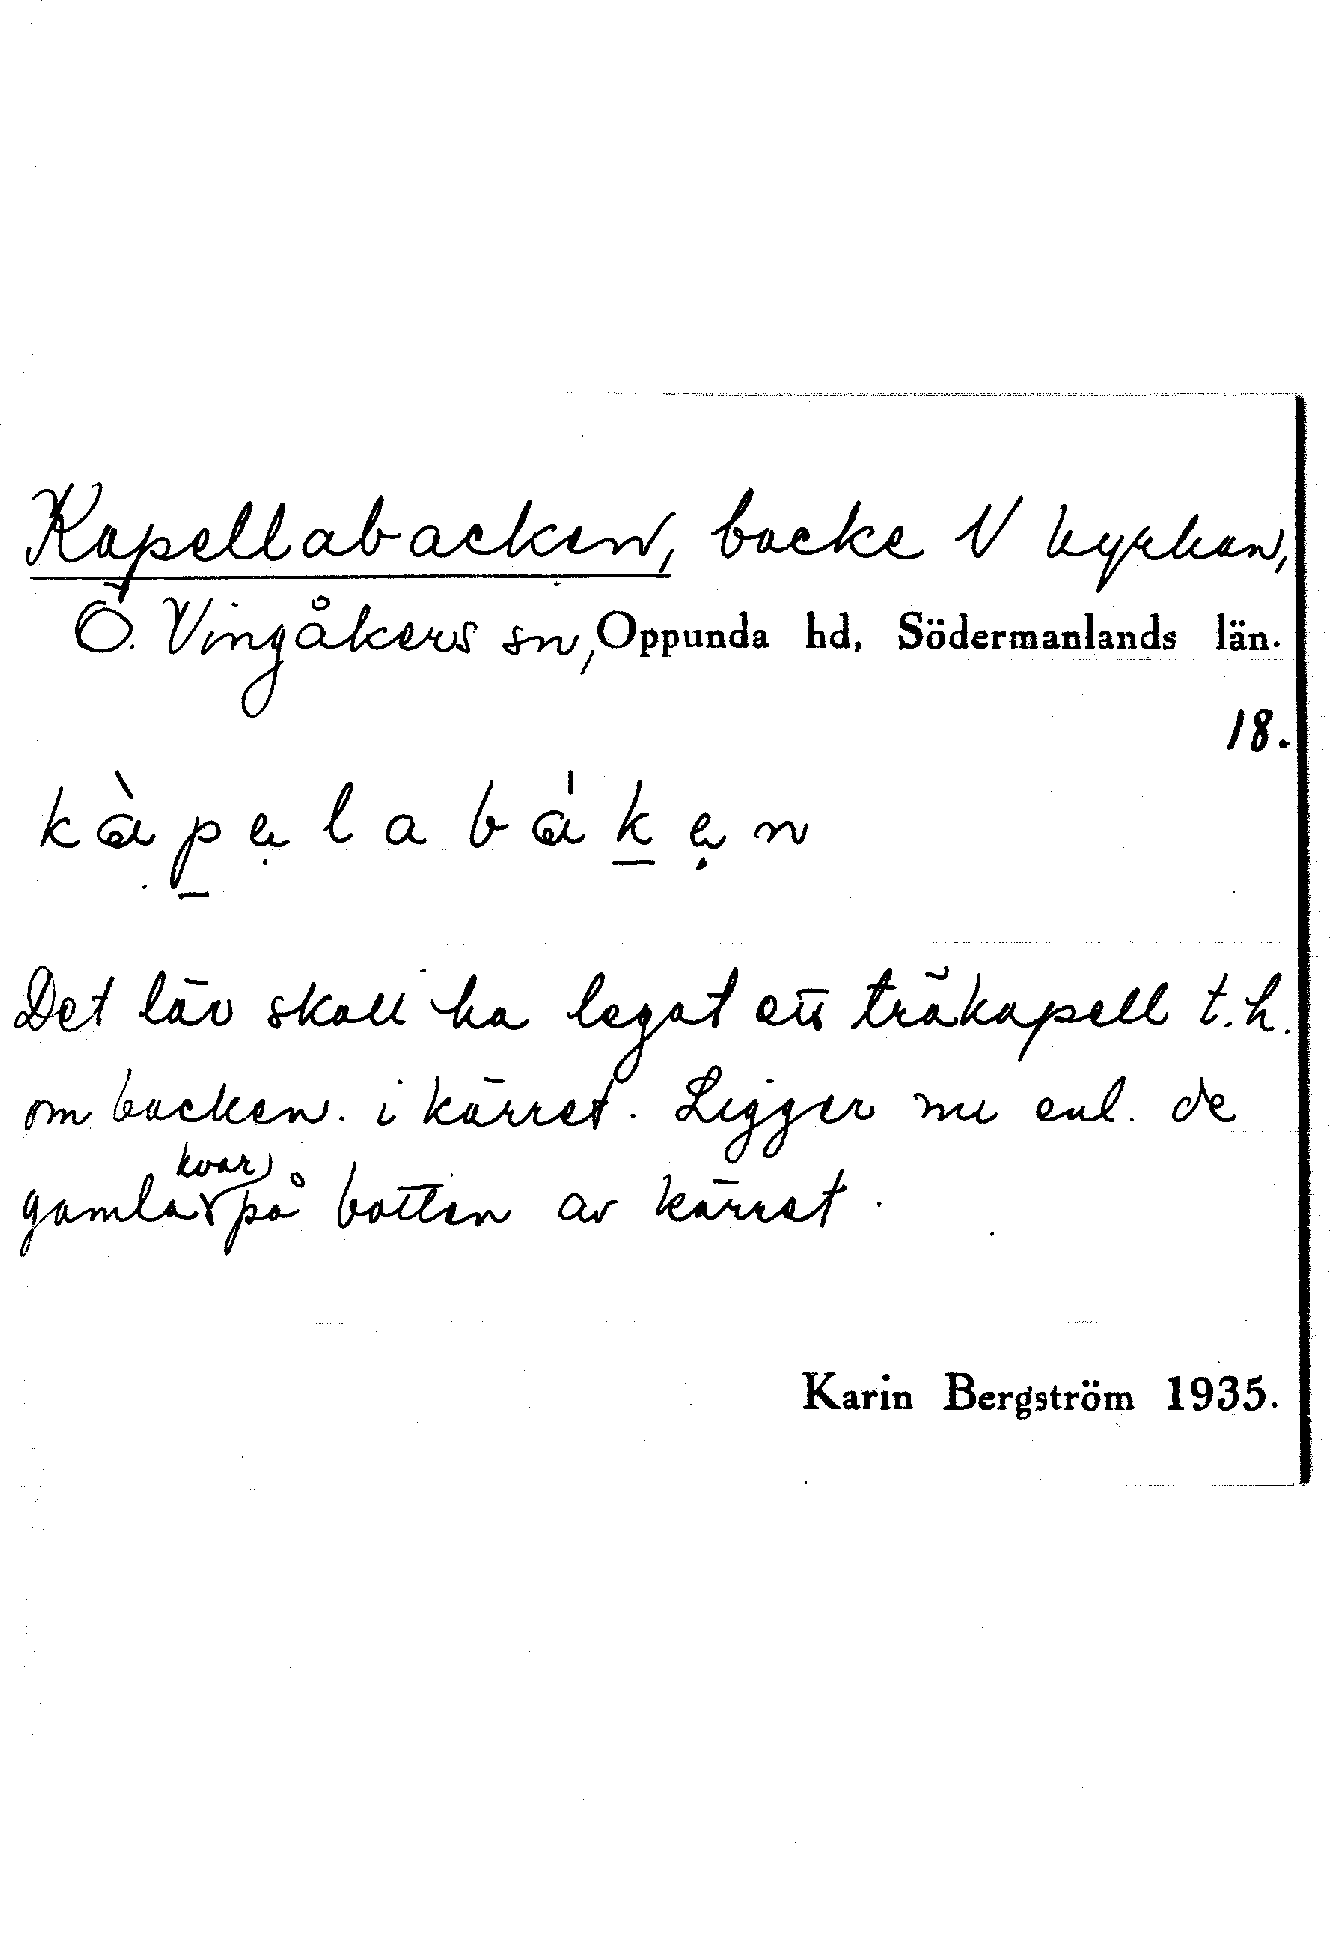 Kapellabacken, backe N kyrkan,
Ö. Vingåkers sn, Oppunda hd, Södermanlands län.
18.
kàpẹlabákẹn
Det läv skall ha legat ett träkapell t.h.
om backen. i kärret. Ligger nu enl. de
gamla kvar på botten av kärret.
Karin Bergström 1935.